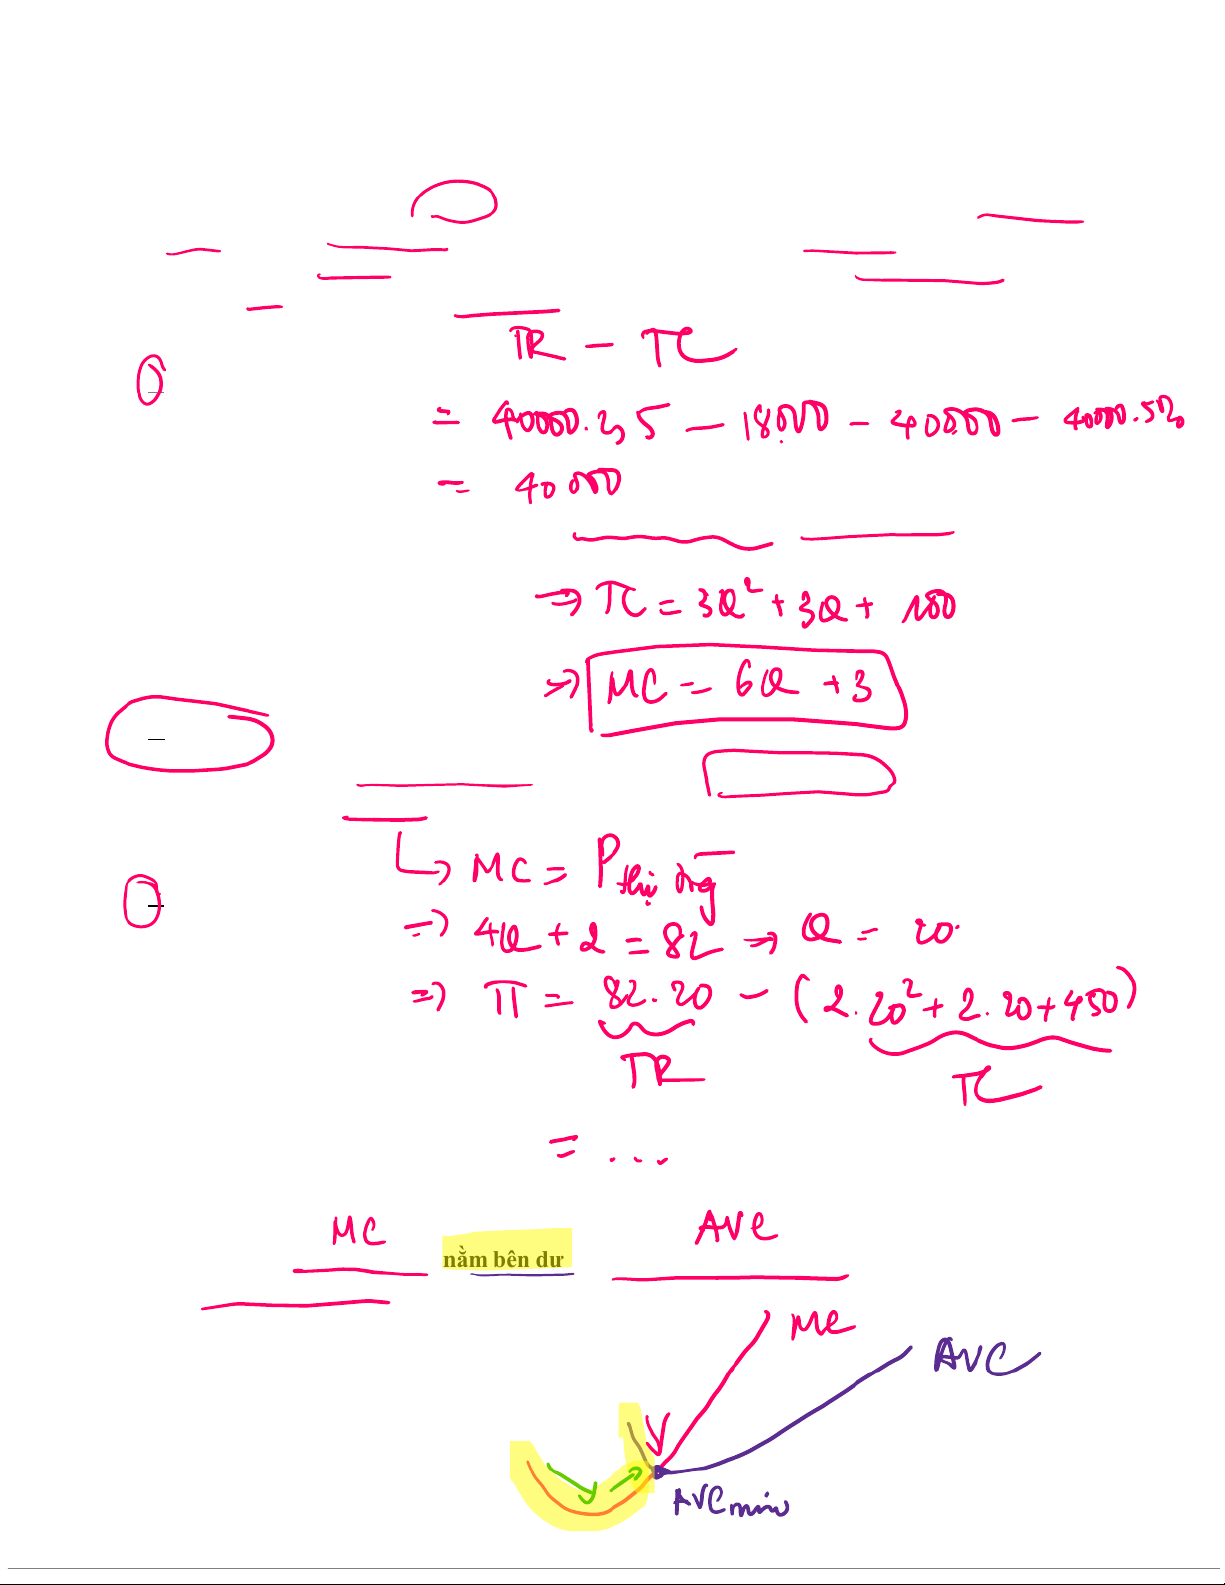 TR - TC
= 40000.3,5 - 18000 - 40000 - 40000.5%
= 40000
=> TC = 3Q² + 3Q + 100
=> MC = 6Q + 3
↳ MC = P thị trường
=> 4Q + 2 = 82 → Q = 20.
=> π = 82.20 - (2.20² + 2.20 + 450)
TR
TC
= ...
MC nằm bên dư AVC
MC
AVC
AVCmin